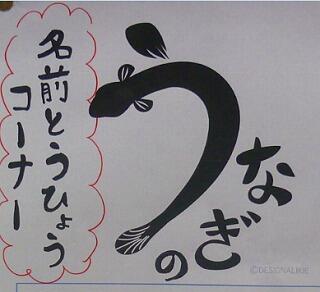 うなぎの
名前とうひょう
コーナー
©DESIGNALIKIE